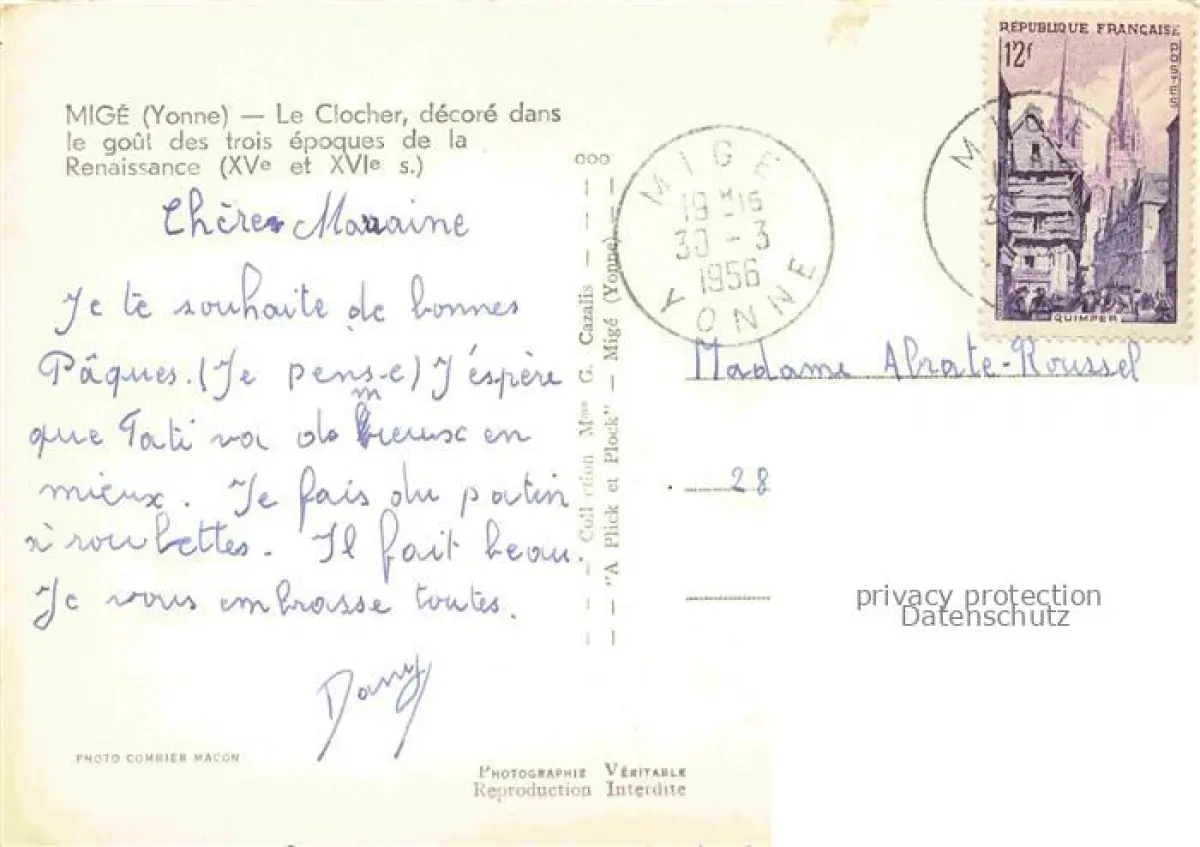 MIGÉ (Yonne) — Le Clocher, décoré dans
le goût des trois époques de la
Renaissance (XVe et XVIe s.)
Chère Marraine
Je te souhaite de bonnes
Pâques. (Je pense) J'éspère
que Tati va de mieux en
mieux. Je fais du patin
à roulettes. Il fait beau.
Je vous embrasse toutes.
Dany
PHOTO COMBIER MACON
PHOTOGRAPHIE VÉRITABLE
Reproduction Interdite
Collection Mme G. Cazalis —
— "A Plick et Plock" — Migé (Yonne)
MIGÉ
19 H 15
30 - 3
1956
YONNE
MIGÉ
RÉPUBLIQUE FRANÇAISE
12f
POSTES
QUIMPER
Madame Abrate-Roussel
28
privacy protection
Datenschutz